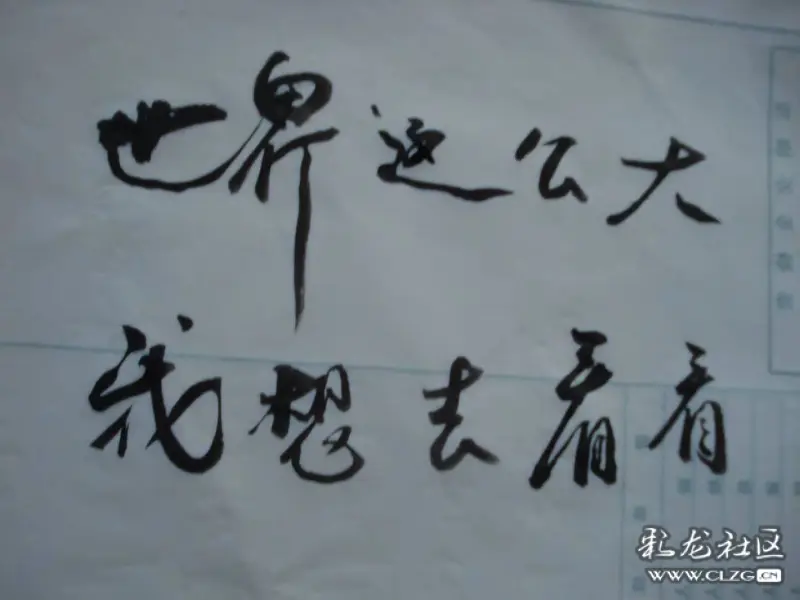 世界这么大
我想去看看
彩龙社区
WWW.CLZG.CN